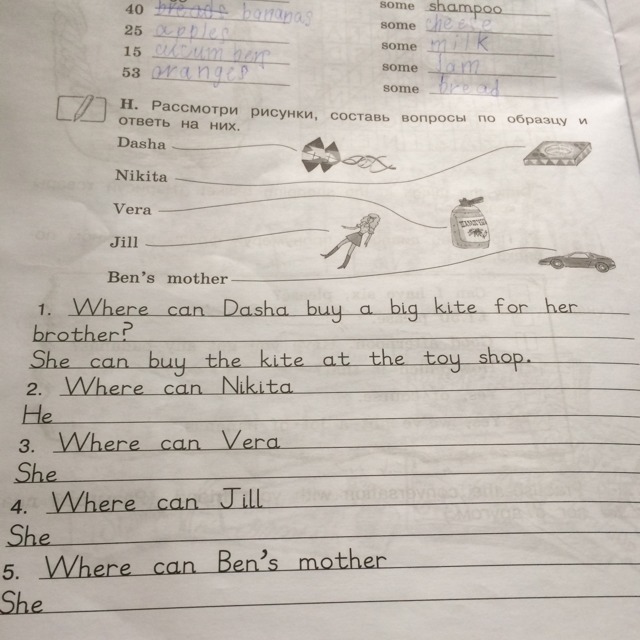 40 breads bananas
some shampoo
25 apples
some cheese
15 cucumbers
some milk
53 oranges
some Jam
some bread
Н. Рассмотри рисунки, составь вопросы по образцу и
ответь на них.
Dasha
Nikita
Vera
Jill
Ben's mother
1. Where can Dasha buy a big kite for her
brother?
She can buy the kite at the toy shop.
2. Where can Nikita
He
3. Where can Vera
She
4. Where can Jill
She
5. Where can Ben's mother
She